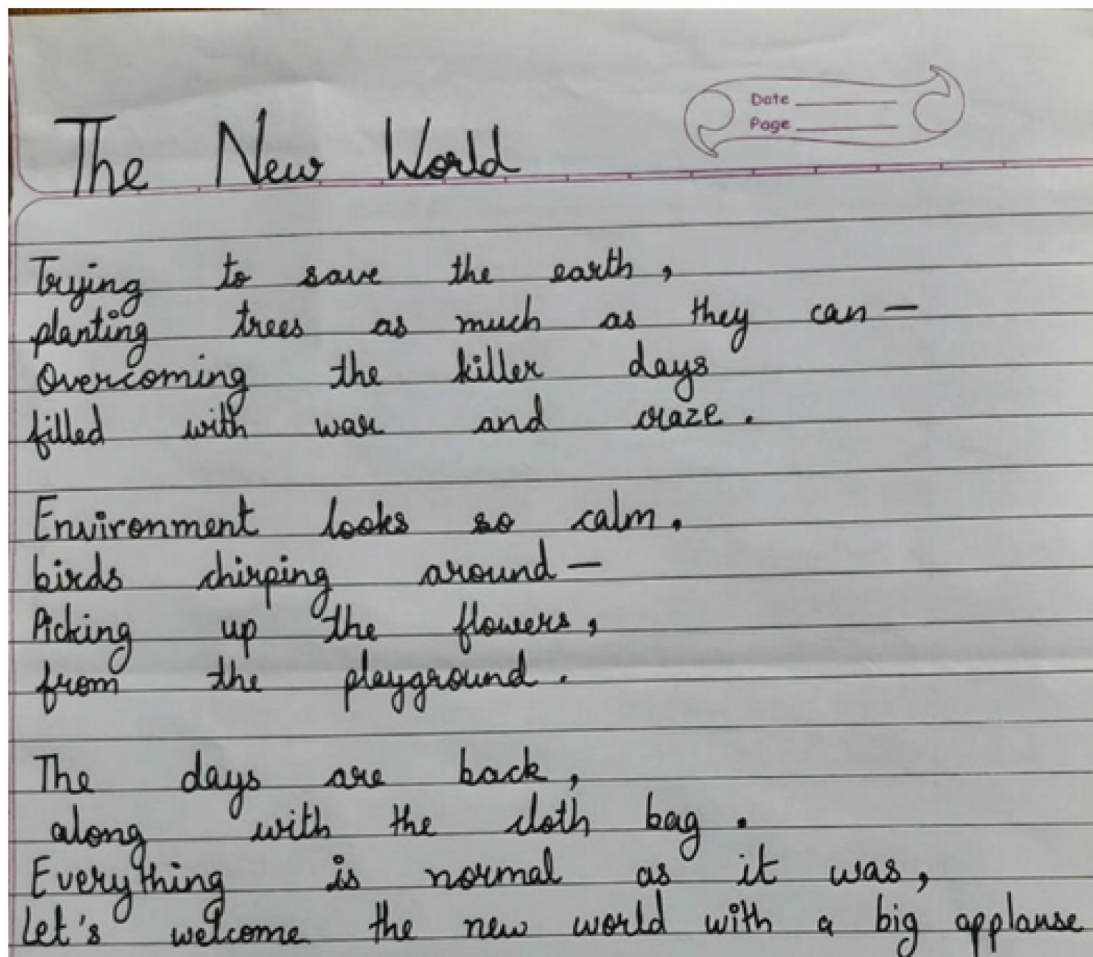 Date
Page
The New World
Trying to save the earth,
planting trees as much as they can—
Overcoming the killer days
filled with war and craze.
Environment looks so calm.
birds chirping around—
Picking up the flowers,
from the playground.
The days are back,
along with the cloth bag.
Everything is normal as it was,
Let's welcome the new world with a big applause